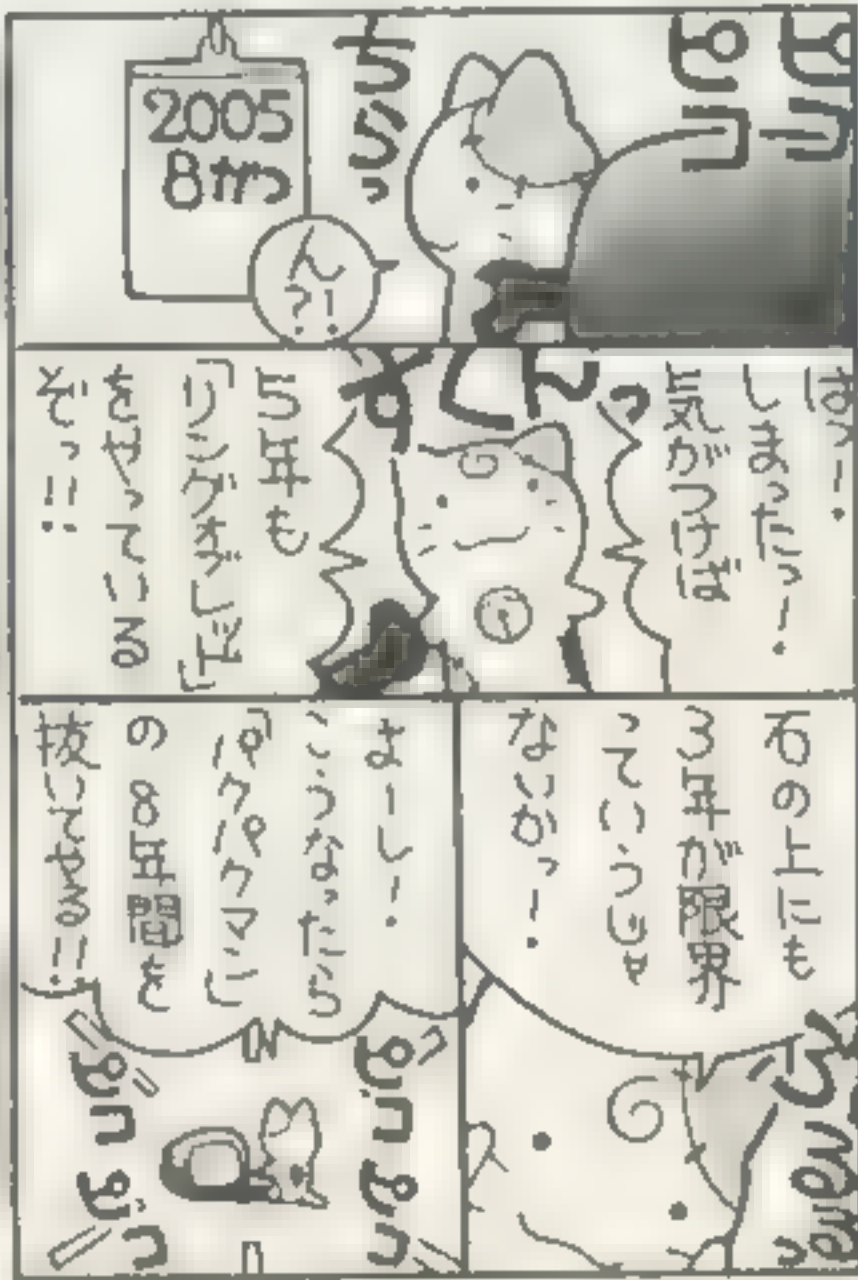 ピコ
ピコ
チラッ
2005
8がつ
ん?!
はっ!
しまったっ!
気がつけば
がくんっ
5年も
「リングオブレッド」
をやっている
ぞっ!!
石の上にも
3年が限界
っていうじゃ
ないかっ!
よーし!
こうなったら
「パクパクマン」
の8年間を
抜いてやる!!
ピコピコ
ピコピコ